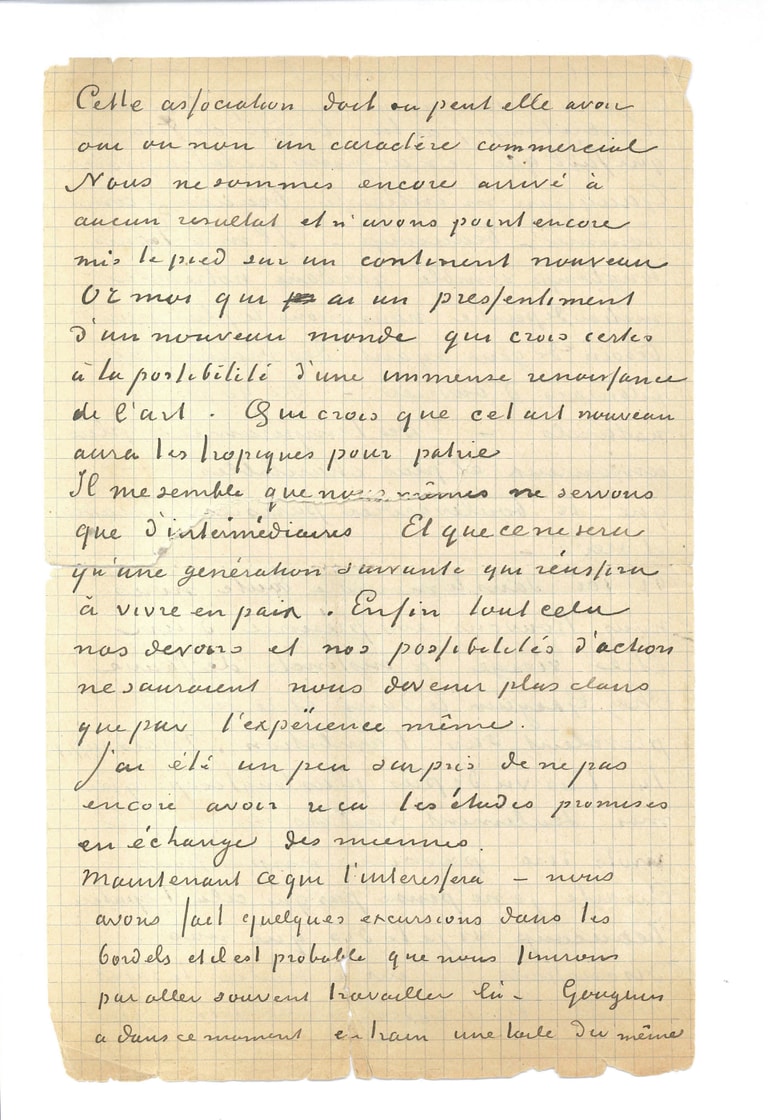 Cette association doit ou peut elle avoir
oui ou non un caractère commercial
Nous ne sommes encore arrivé à
aucun resultat et n'avons point encore
mis le pied sur un continent nouveau
Or moi qui ai un pressentiment
d'un nouveau monde qui crois certes
à la possibilité d'une immense renaissance
de l'art . Qui crois que cet art nouveau
aura les tropiques pour patrie
Il me semble que nous mêmes ne servons
que d'intermédiaires Et que ce ne sera
qu'une génération suivante qui réussira
à vivre en paix . Enfin tout cela
nos devoirs et nos possibilités d'action
ne sauraient nous devenir plus clairs
que par l'expërience même .
J'ai été un peu surpris de ne pas
encore avoir reçu les études promises
en échange des miennes .
Maintenant ce qui t'interessera – nous
avons fait quelques excursions dans les
bordels et il est probable que nous finirons
par aller souvent travailler là – Gauguin
a dans ce moment en train une toile du même